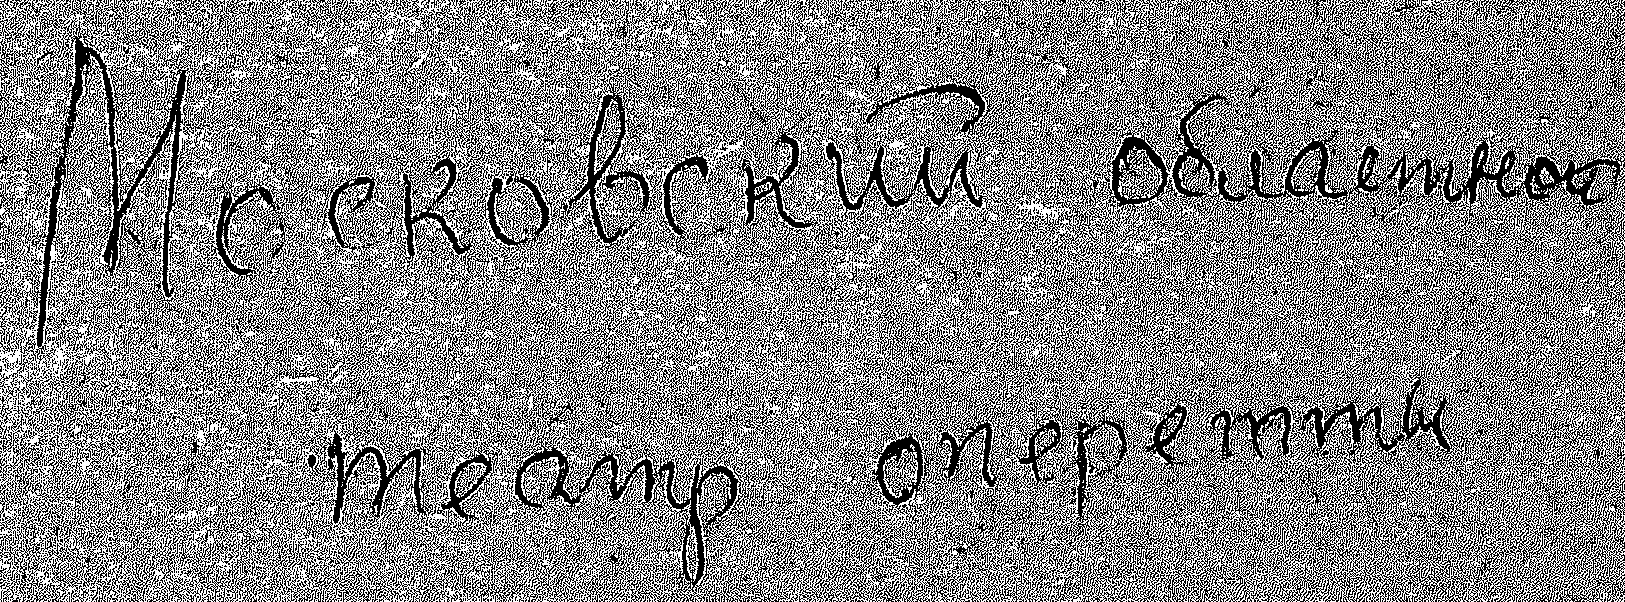 Московский областной
театр оперетты